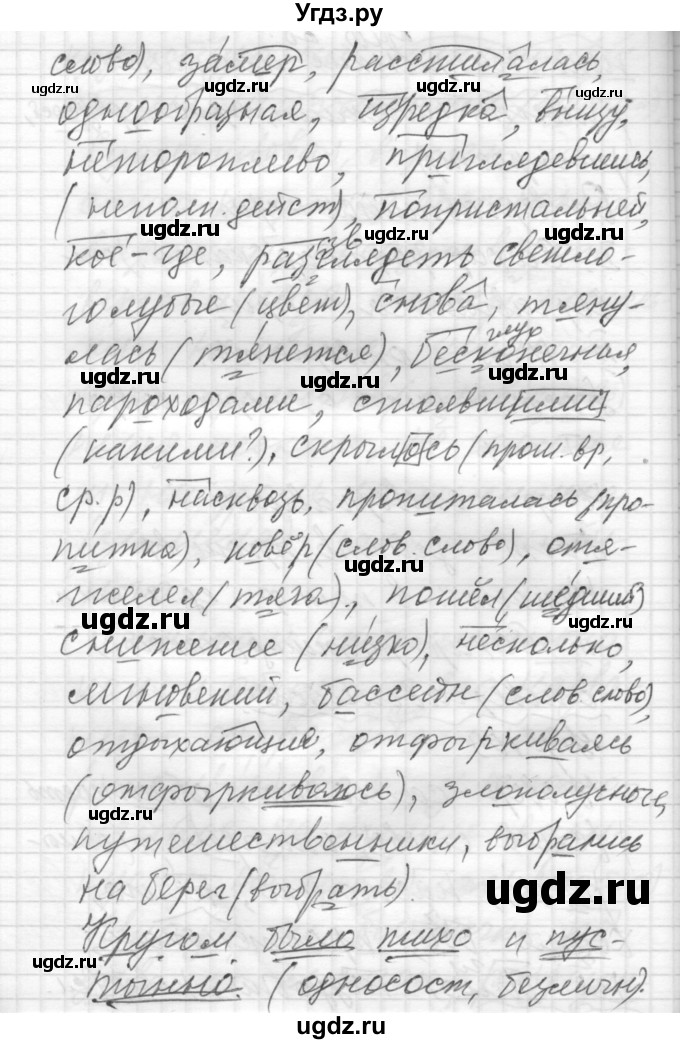 Угдз.ру
слово), замер, расстилалась,
однообразная, изредка, внизу,
неторопливо, приглядевшись,
(неполн. дейст), попристальней,
кое-где, разглядеть светло-
зв
голубые (цвет), снова, тяну-
лась (тянется), бесконечная,
глух
пароходами, стоявшими
(какими?), скрылось (прош. вр,
ср. р), насквозь, пропиталась (про-
питка), ковёр (слов. слово), отя-
желел (тяга), пошёл (шедший)
снижение (низко), несколько,
мгновений, бассейн (слов. слово),
отдыхающие, отфыркиваясь
(отфыркиваюсь), злополучные,
путешественники, выбрались
на берег (выбрать).
Кругом было тихо и пус-
тынно. (односост, безличн).
ugdz.ru